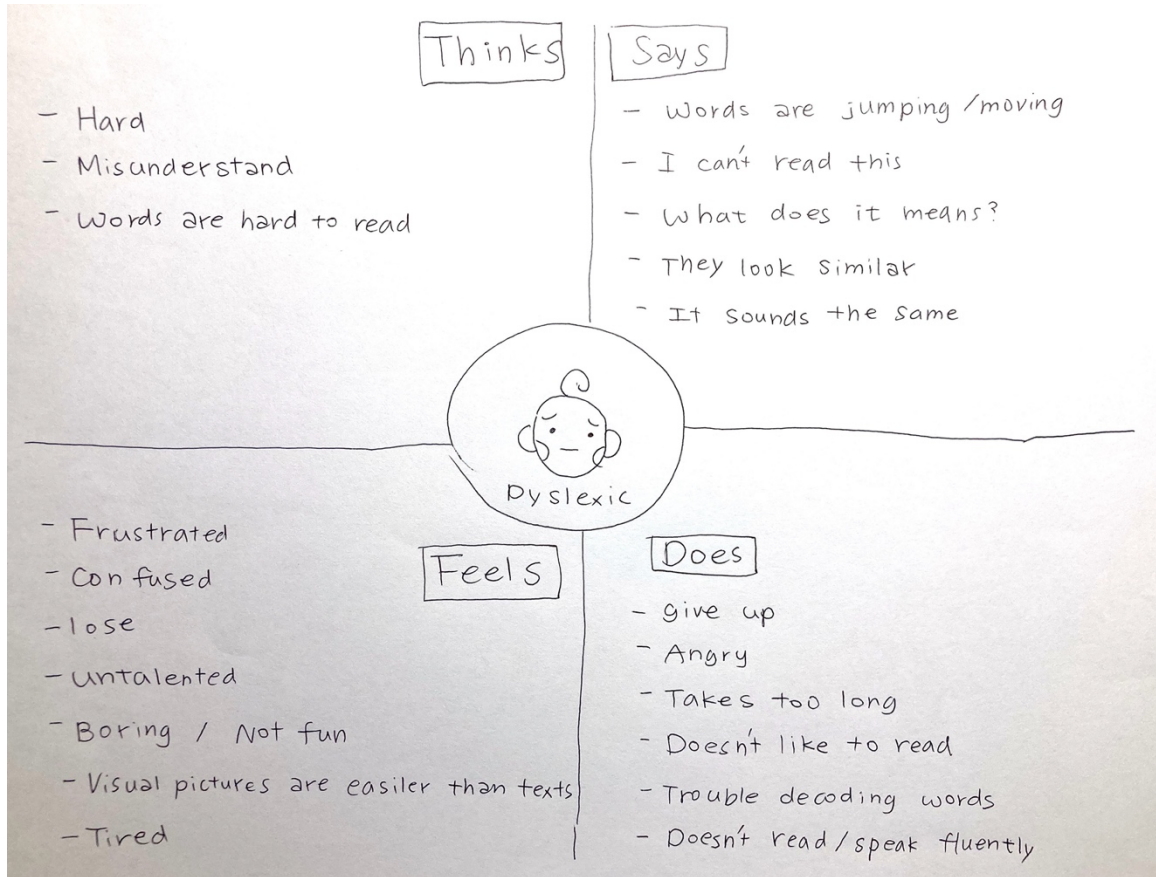 Thinks
- Hard
- Misunderstand
- Words are hard to read
Says
- Words are jumping/moving
- I can't read this
- What does it means?
- They look similar
- It sounds the same
Dyslexic
Feels
- Frustrated
- Confused
- lose
- untalented
- Boring / Not fun
- Visual pictures are easiler than texts
- Tired
Does
- give up
- Angry
- Takes too long
- Doesn't like to read
- Trouble decoding words
- Doesn't read/speak fluently